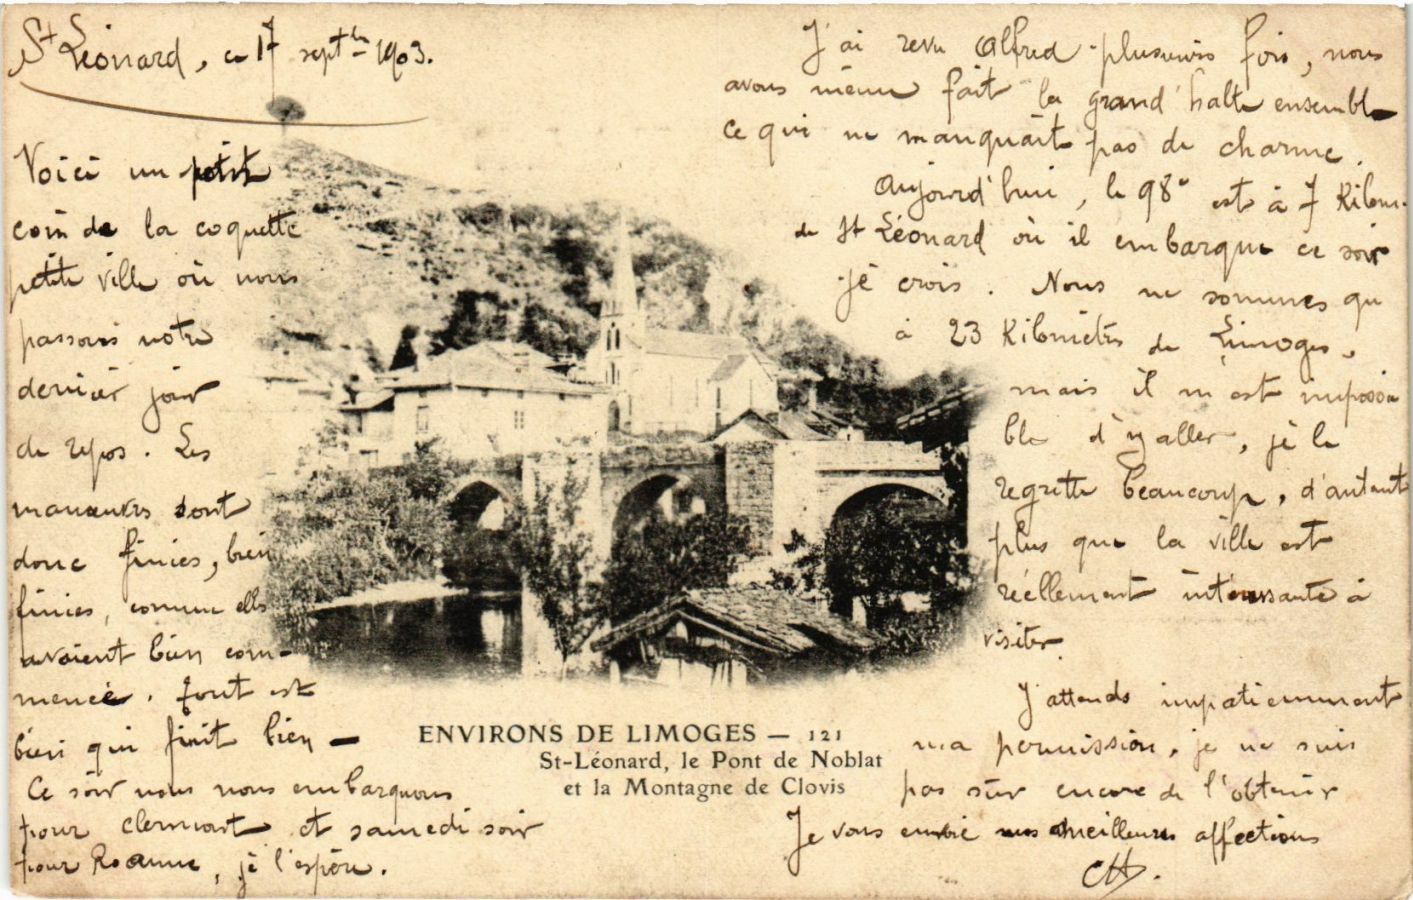 St Léonard, ce 17 septbre 1903.
Voici un petit
coin de la coquette
petite ville où nous
passons notre
dernier jour
de repos. Les
manœuvres sont
donc finies, bien
finies, comme elles
avaient bien com-
mencé. Tout est
bien qui finit bien —
Ce soir nous nous embarquons
pour Clermont et samedi soir
pour Roanne, je l'espère.
J'ai revu Alfred plusieurs fois, nous
avons même fait la grand'halte ensemble
ce qui ne manquait pas de charme.
Aujourd'hui, le 98e est à 7 Kilom.
de St Léonard où il embarque ce soir
je crois. Nous ne sommes qu
à 23 Kilomètres de Limoges,
mais il m'est impossi
ble d'y aller, je le
regrette beaucoup, d'autant
plus que la ville est
réellement intéressante à
visiter
J'attends impatiemment
ma permission, je ne suis
pas sûr encore de l'obtenir
Je vous envoie mes meilleures affections
CH.
ENVIRONS DE LIMOGES — 121
St-Léonard, le Pont de Noblat
et la Montagne de Clovis